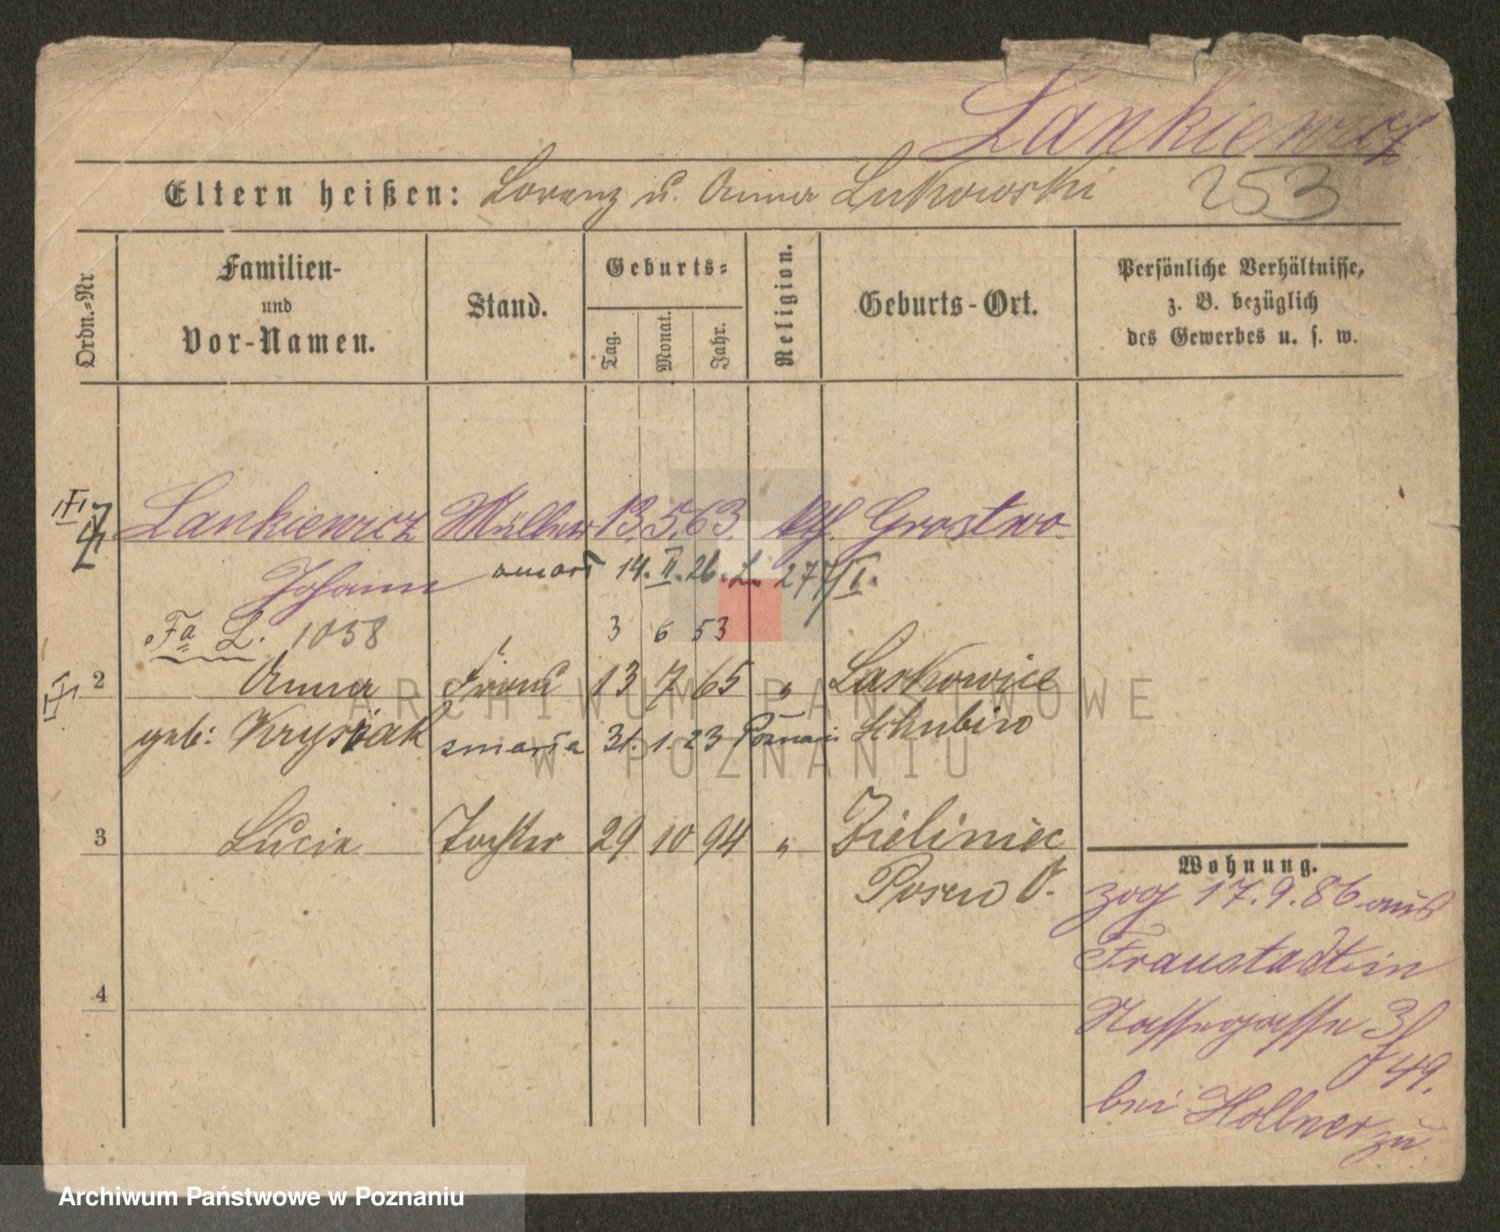 Lankiewicz
Eltern heißen: Lorenz u. Anna Lukowski 253
Ordn.-Nr
Familien-
und
Vor-Namen.
Stand.
Geburts-
Tag.
Monat.
Jahr.
Religion.
Geburts-Ort.
Persönliche Verhältnisse,
z. B. bezüglich
des Gewerbes u. s. w.
Lankiewicz Müller 13. 5. 63. kth. Grostwo
Johann umarł 14. II. 26. L. 277/I.
Fa L. 1058 3 6 53
2 Anna Frau 13 7 65 " Laskowice
geb: Krysiak zmarła 31. 1. 23 Poznań Schubin
3 Lucie Tochter 29 10 94 " Zieliniec
Posen O.
4
Wohnung.
zog 17. 9. 86 aus
Fraustadt in
Nassegasse 3
49.
bei Hollner zu
ARCHIWUM PAŃSTWOWE
W POZNANIU
Archiwum Państwowe w Poznaniu